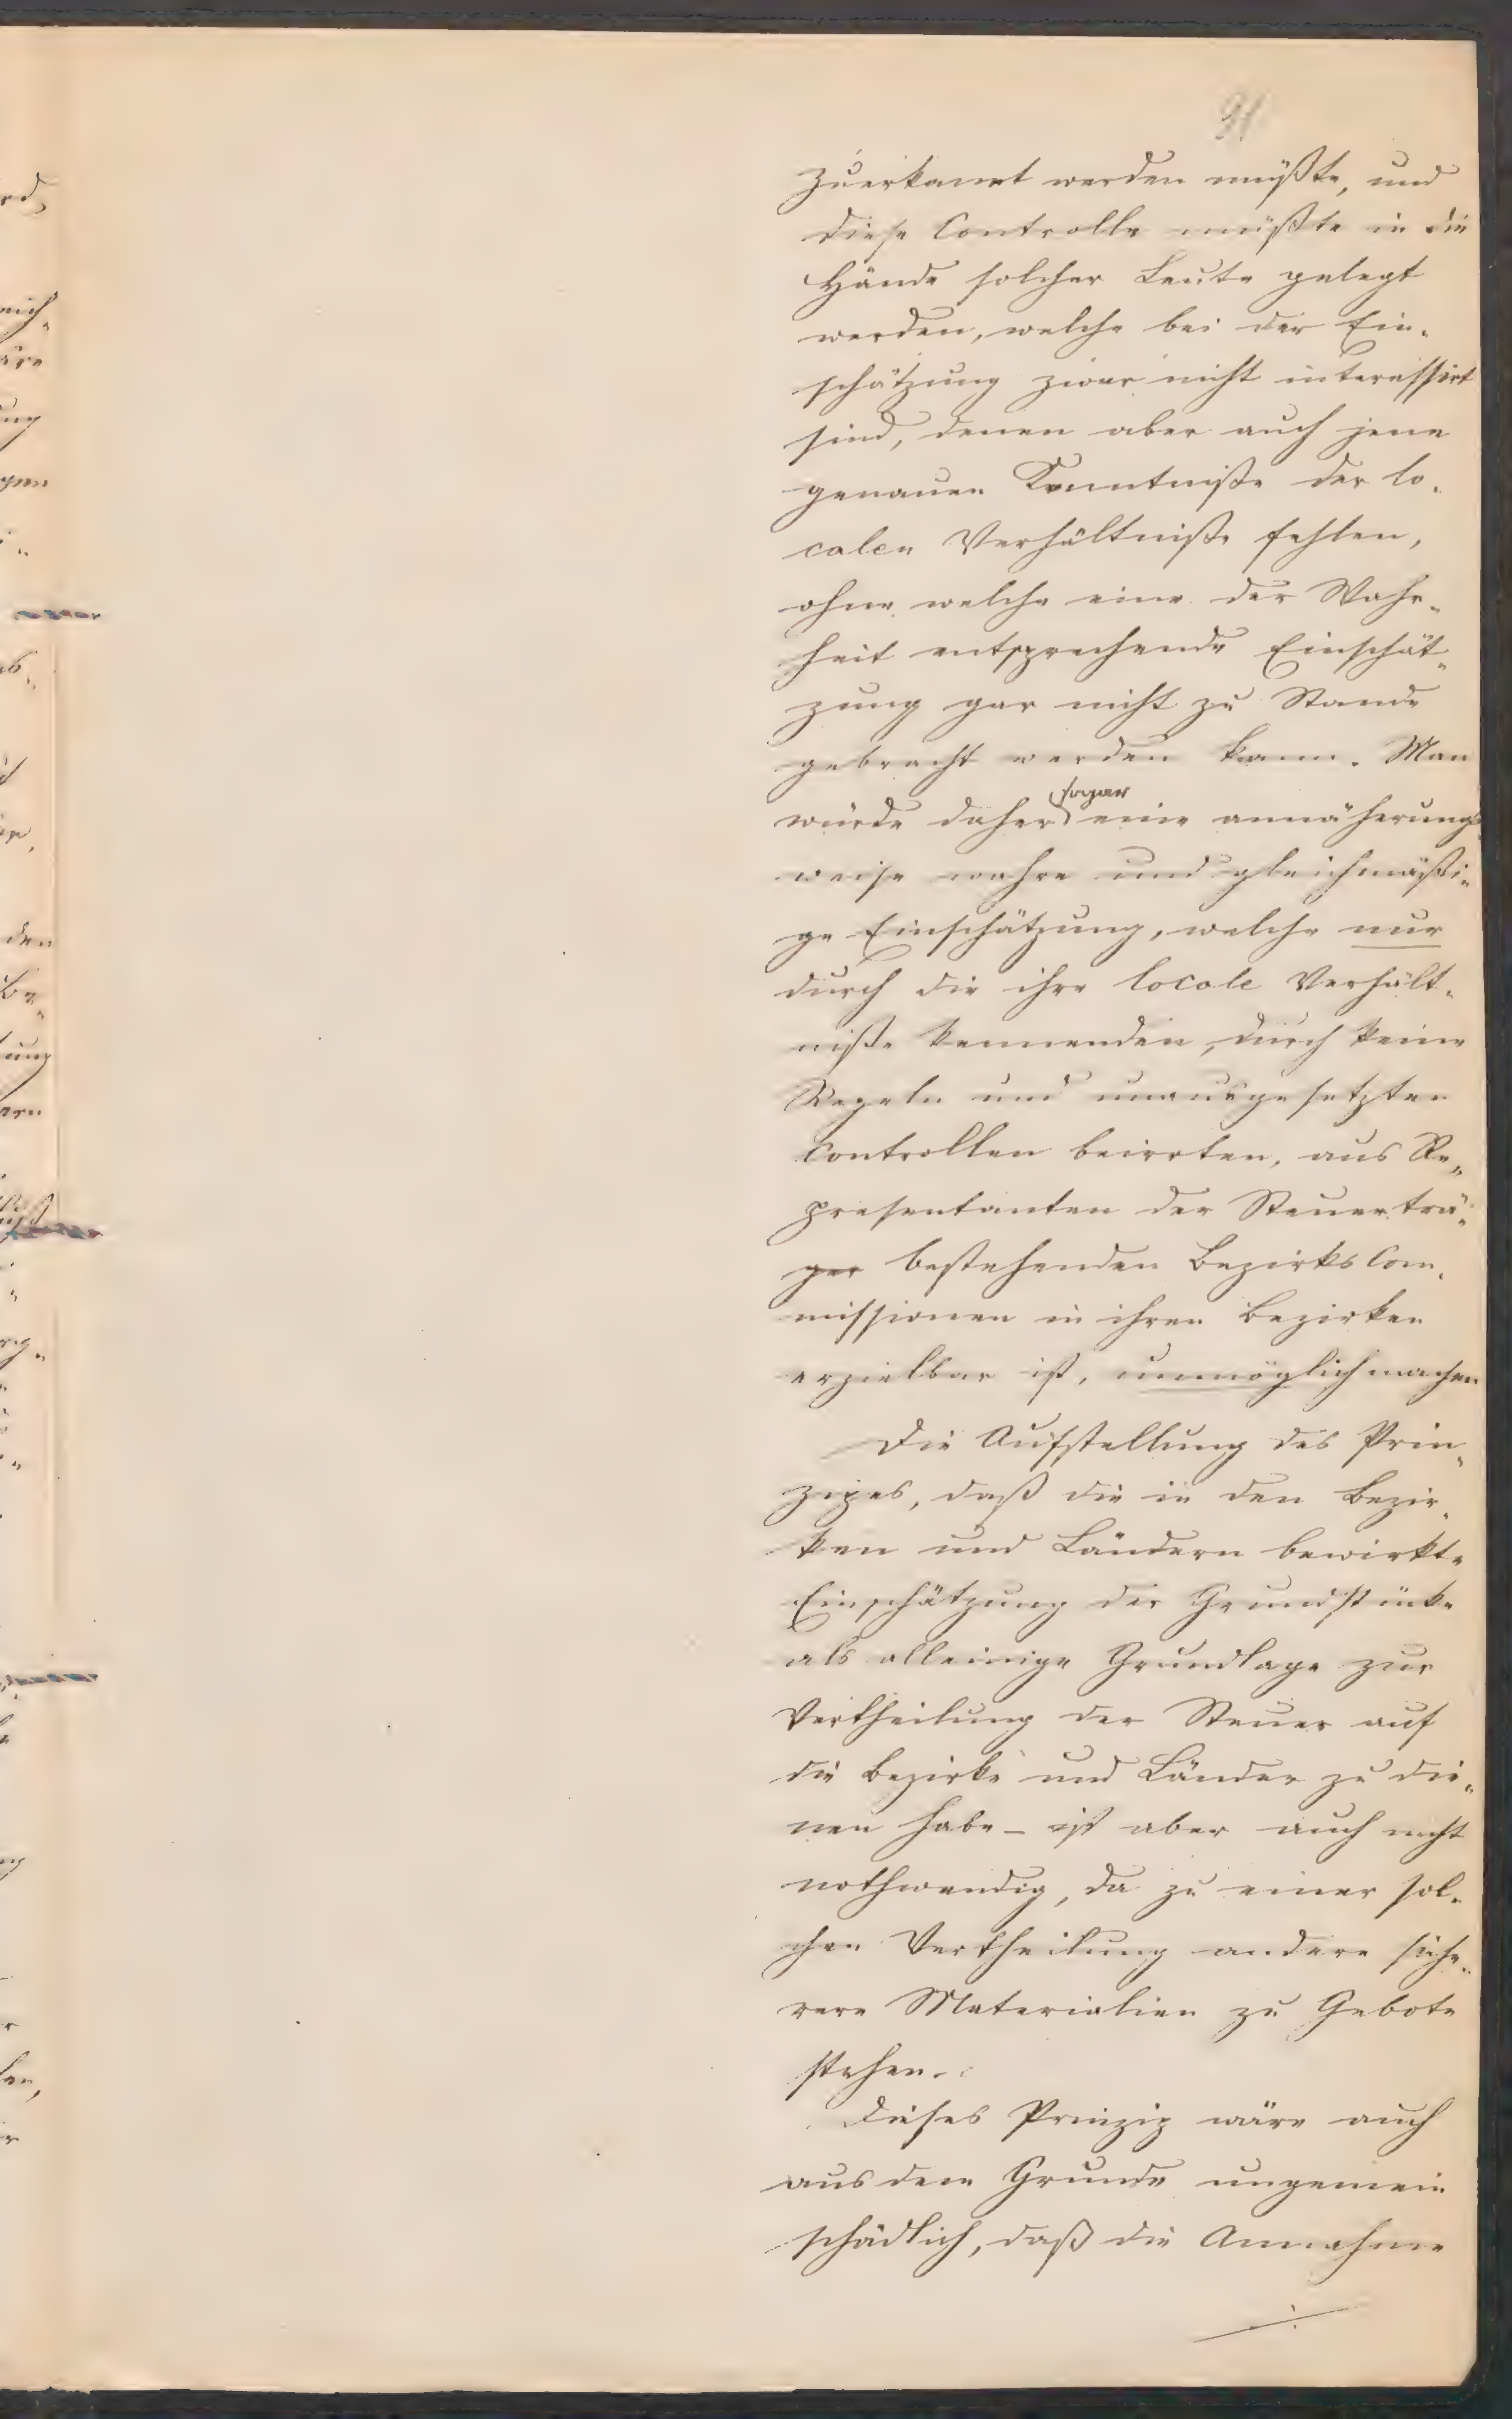 91
zuerkannt werden müßte, und
diese Controlle müßte in die
Hände solcher Leute gelegt
werden, welche bei der Ein-
schätzung zwar nicht interessirt
sind, denen aber auch jene
genauen Kenntniße der lo-
calen Verhältniße fehlen,
ohne welche eine der Wahr-
heit entsprechende Einschät-
zung gar nicht zu Stande
gebracht werden kann. Man
sogar
würde daher eine annäherungs-
weise wahre und gleichmäßi-
ge Einschätzung, welche nur
durch die ihre locale Verhält-
niße kennenden, durch keine
Regeln und unausgesetzten
Controllen beirrten, aus Re-
presentanten der Steuerträ-
ger bestehenden Bezirks Com-
missionen in ihren Bezirken
erzielbar ist, unmöglich machen
Die Aufstellung des Prin-
zipes, daß die in den Bezir-
ken und Ländern bewirkte
Einschätzung der Grundstücke
als alleinige Grundlage zur
Vertheilung der Steuer auf
die Bezirke und Länder zu die-
nen habe – ist aber auch nicht
nothwendig, da zu einer sol-
chen Vertheilung andere siche-
rere Materialien zu Gebote
stehen.
Dieses Prinzip wäre auch
aus dem Grunde ungemein
schädlich, daß die Annahme
./.